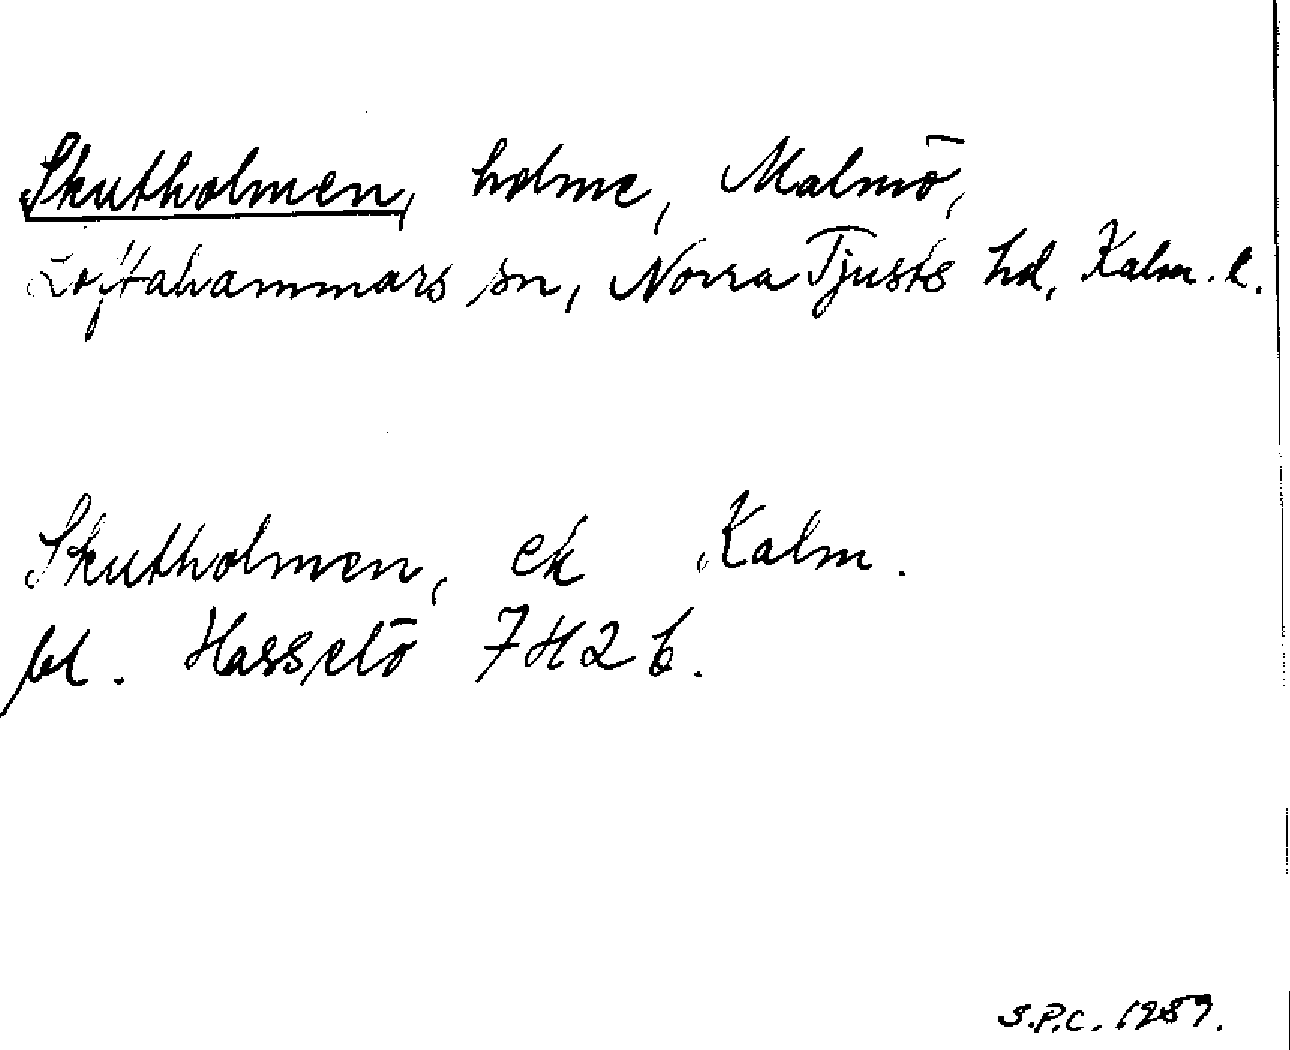 Skutholmen, holme, Malmö,
Loftahammars sn, Norra Tjusts hd, Kalm. l.
Skutholmen, ek Kalm.
bl. Hasselö 7H2b.
S.P.C. 1989.